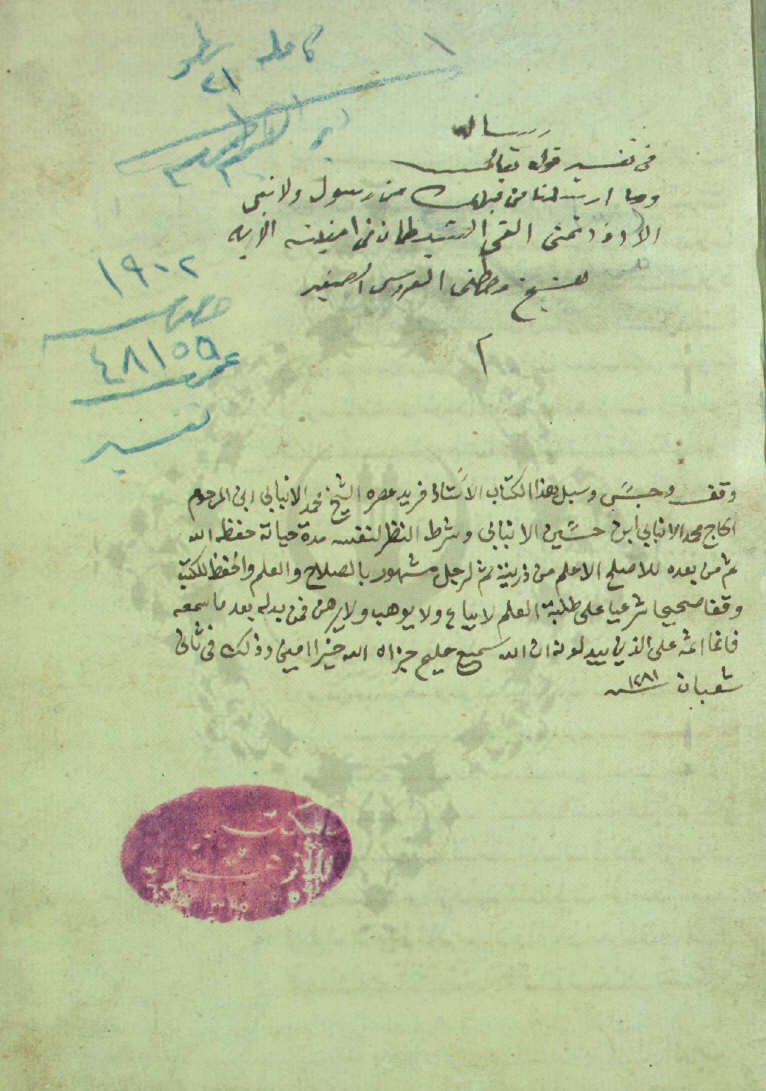 كاملة
٢١
رسالة
في تفسير قوله تعالى
وما ارسلنا من قبلك من رسول ولا نبي
الا اذا تمنى القى الشيطان في امنيته الايه
للشيخ مصطفى العروسي الصغير
٢
١٩٠٢
خصوصية
٤٨١٥٥
عمومية
تفسير
وقف وحبس وسبل هذا الكتاب الاستاذ فريد عصره الشيخ محمد الانبابي ابن المرحوم
الحاج محمد الانبابي ابن حسين الانبابي وشرط النظر لنفسه مدة حياته حفظه الله
ثم من بعده للاصلح الاعلم من ذريته ثم لرجل مشهور بالصلاح والعلم والحفظ للكتب
وقفا صحيحا شرعيا على طلبة العلم لا يباع ولا يوهب ولا يرهن فمن بدله بعد ما سمعه
فانما اثمه على الذين يبدلونه ان الله سميع عليم جزاه الله خيرا امين وذلك في ثاني
شعبان ١٢٨١ سنة